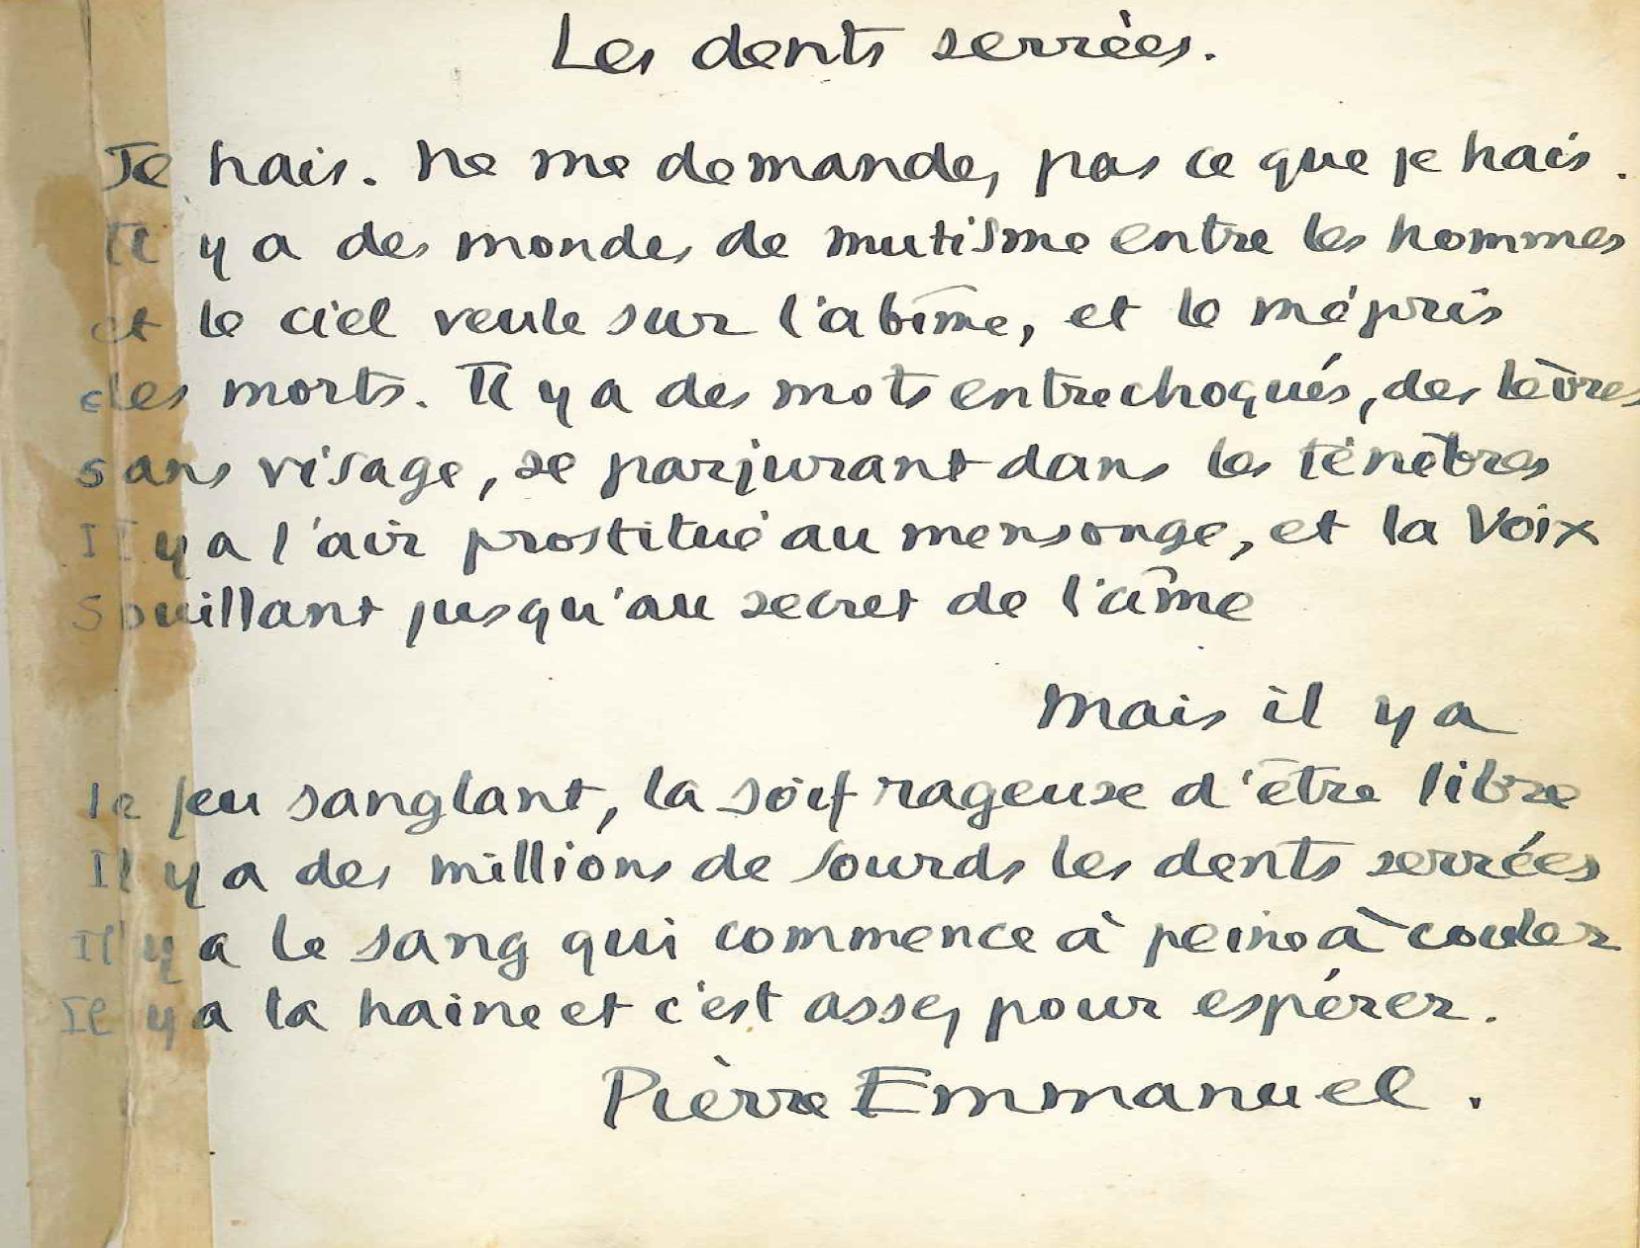 Les dents serrées.
Je hais. Ne me demandez pas ce que je hais.
Il y a des mondes de mutisme entre les hommes
et le ciel veule sur l'abîme, et le mépris
des morts. Il y a des mots entrechoqués, des lèvres
sans visage, se parjurant dans les ténèbres
Il y a l'air prostitué au mensonge, et la Voix
Souillant jusqu'au secret de l'âme
Mais il y a
le feu sanglant, la soif rageuse d'être libre
Il y a des millions de sourds les dents serrées
Il y a le sang qui commence à peine à couler
Il y a la haine et c'est assez pour espérer.
Pierre Emmanuel.